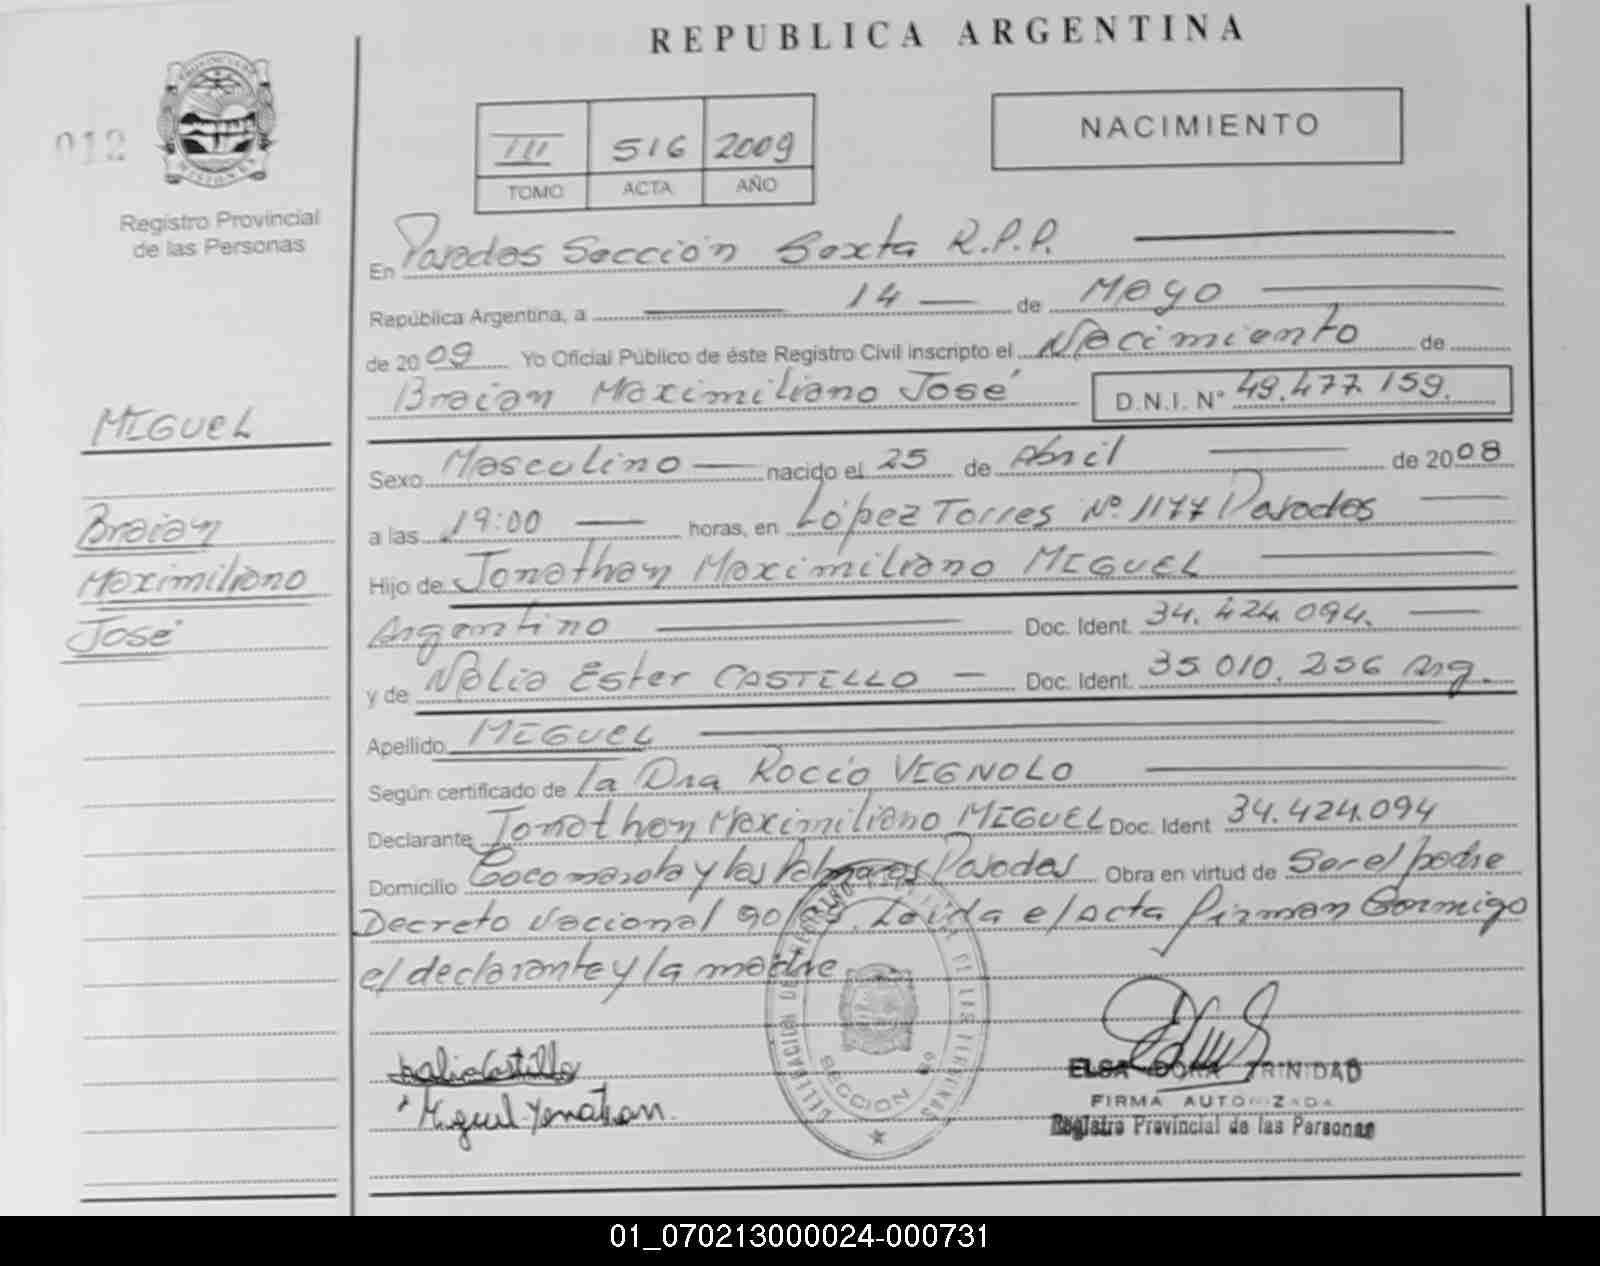 REPUBLICA ARGENTINA
012
PROVINCIA DE MISIONES
Registro Provincial
de las Personas
III 516 2009
TOMO ACTA AÑO
NACIMIENTO
En Posadas Sección Sexta R.P.P.
República Argentina, a 14 de Mayo
de 2009 Yo Oficial Público de éste Registro Civil inscripto el Nacimiento de
Braian Maximiliano José D.N.I. N° 49.477.159.
MIGUEL
Braian
Maximiliano
José
Sexo Masculino nacido el 25 de Abril de 2008
a las 19:00 horas, en López Torres Nº 1177 Posadas
Hijo de Jonathan Maximiliano MIGUEL
Argentino Doc. Ident. 34.424.094.
y de Nalia Ester CASTILLO Doc. Ident. 35.010.256 Arg.
Apellido MIGUEL
Según certificado de la Dra ROCIO VIGNOLO
Declarante Jonathan Maximiliano MIGUEL Doc. Ident 34.424.094
Domicilio Cocomarola y las Palmeras Posadas Obra en virtud de Ser el padre
Decreto Nacional 90/09. Leída el acta firman Conmigo
el declarante y la madre
Nalia Castillo
Miguel Yonatan.
SECCION 6º
ELSA DORA TRINIDAD
FIRMA AUTORIZADA
Registro Provincial de las Personas
01_070213000024-000731